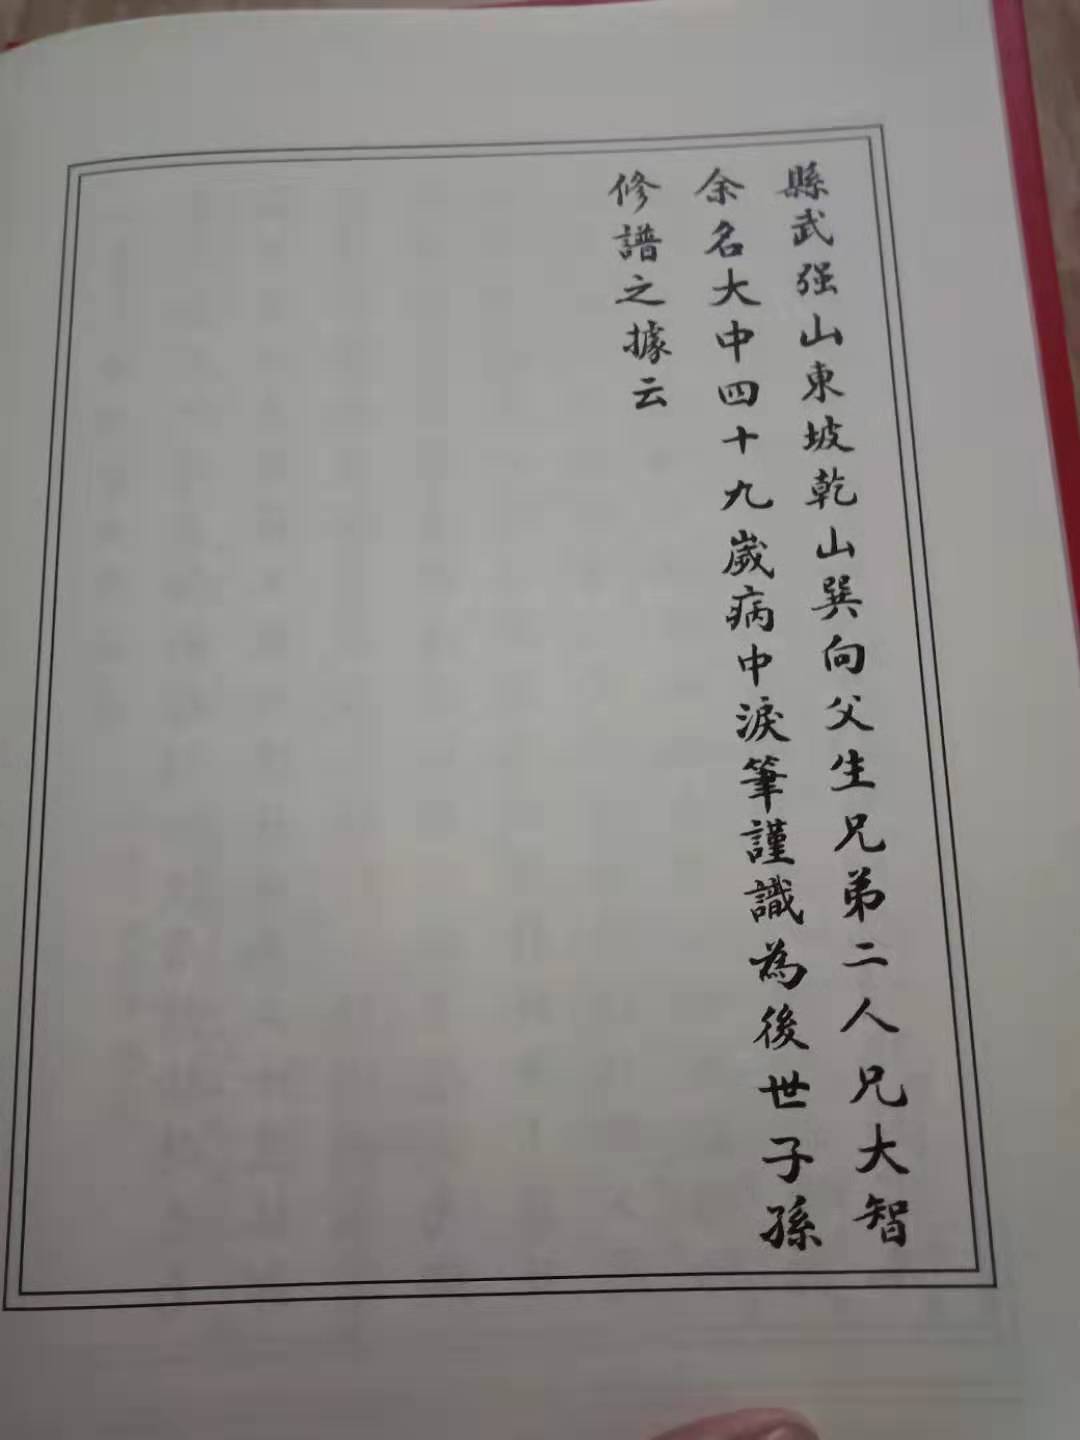 縣武强山東坡乾山巽向父生兄弟二人兄大智
余名大中四十九歲病中淚筆謹識為後世子孫
修譜之據云